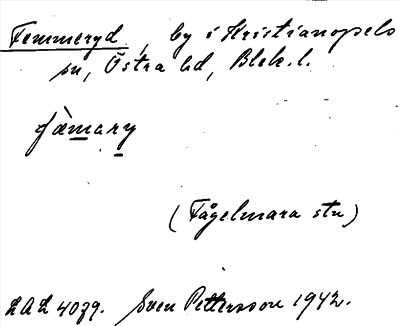 Femmeryd, by i Kristianopels
sn, Östra hd, Blek. l.
fæ̀mary
(Fågelmara stn)
LAL 4079. Sven Pettersson 1942.